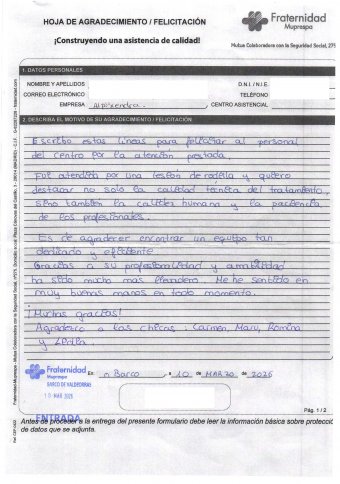 HOJA DE AGRADECIMIENTO / FELICITACIÓN
¡Construyendo una asistencia de calidad!
Fraternidad
Muprespa
Mutua Colaboradora con la Seguridad Social, 275
1. DATOS PERSONALES
NOMBRE Y APELLIDOS
D.N.I. / N.I.E.
CORREO ELECTRÓNICO
TELÉFONO
EMPRESA
CENTRO ASISTENCIAL
2. DESCRIBA EL MOTIVO DE SU AGRADECIMIENTO / FELICITACIÓN
Escribo estas lineas para felicitar al personal
del centro por la atención prestada.
Fui atendido por una lesión de rodilla y quiero
destacar no solo la calidad técnica del tratamiento,
sino también la calidez humana y la paciencia
de los profesionales.
Es de agradecer encontrar un equipo tan
dedicado y eficiente.
Gracias a su profesionalidad y amabilidad
ha sido mucho más llevadero. Me he sentido en
muy buenas manos en todo momento.
¡Muchas gracias!
Agradezco a las chicas: Carmen, Maru, Romina
y
Fraternidad
Muprespa
BARCO DE VALDEORRAS
10 MAR 2026
ENTRADA
En O Barco, a 10 de MARZO de 2026
Pág. 1 / 2
Antes de proceder a la entrega del presente formulario debe leer la información básica sobre protecció
de datos que se adjunta.